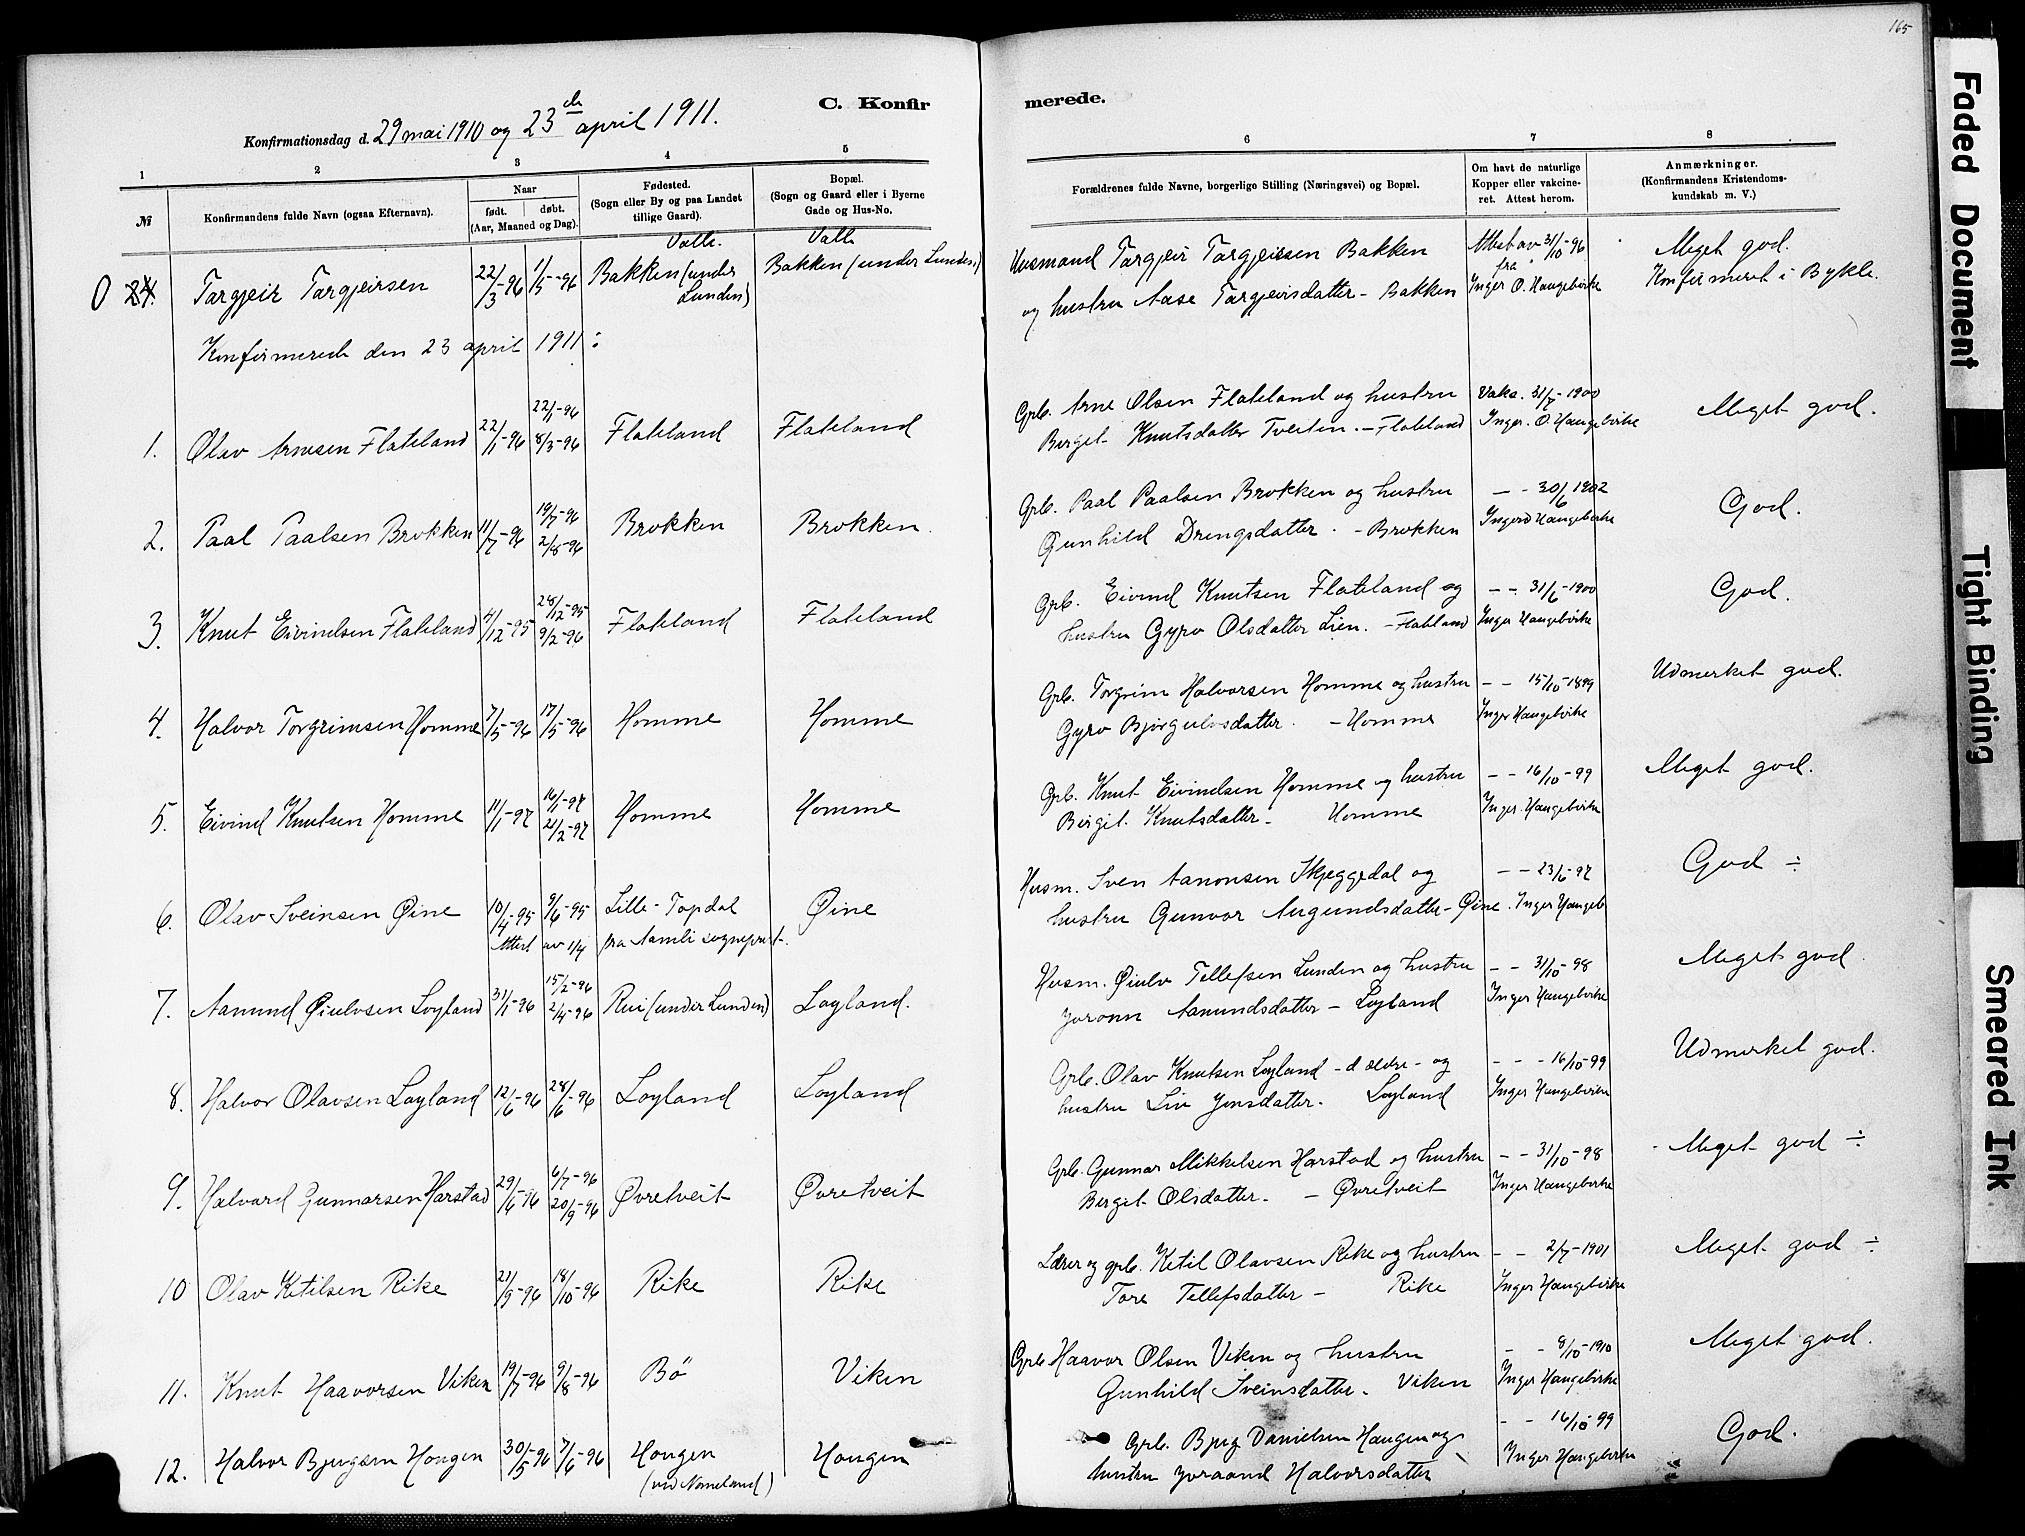 165
C. Konfirmerede.
Konfirmationsdag d. 29 mai 1910 og 23de april 1911.
1 2 3 4 5 6 7 8
№
Konfirmandens fulde Navn (ogsaa Efternavn).
Naar
født. døbt.
(Aar, Maaned og Dag).
Fødested.
(Sogn eller By og paa Landet
tillige Gaard).
Bopæl.
(Sogn og Gaard eller i Byerne
Gade og Hus-No.
Forældrenes fulde Navne, borgerlige Stilling (Næringsvei) og Bopæl.
Om havt de naturlige
Kopper eller vakcine-
ret. Attest herom.
Anmærkninger.
(Konfirmandens Kristendoms-
kundskab m. V.)
Valle. Valle
0 24. Targjeir Targjeirsen 22/3-96 1/5-96 Bakken (under Lunden) Bakken (under Lunden) Husmand Targjeir Targjeirsen Bakken Attest av 31/10-96 Meget god.
og hustru Aase Targjeirsdatter - Bakken fra Inger O. Haugebirke Konfirmeret i Bykle.
Konfirmerede den 23 april 1911:
1. Olav Arnesen Flateland 22/1-96 22/1-96 8/3-96 Flateland Flateland Grb. Arne Olsen Flateland og hustru Vaks. 31/7-1900 Meget god.
Berget Knutsdatter Tveiten. - Flateland Inger. O. Haugebirke
2. Paal Paalsen Brokken 11/7-96 19/7-96 2/8-96 Brokken Brokken. Grb. Paal Paalsen Brokken og hustru - - 30/6 1902 God.
Gunhild Drengsdatter. - Brokken Inger O Haugebirke
3. Knut Eivindsen Flateland 4/12-95 28/12-95 9/2-96 Flateland Flateland Grb. Eivind Knutsen Flateland og - - 31/6-1900 God.
hustru Gyro Olsdatter Lien. - Flateland Inger Haugebirke
4. Halvor Torgrimsen Homme 7/5-96 17/5-96 Homme Homme Grb. Torgrim Halvorsen Homme og hustru - - 15/10-1899 Udmerket god.
Gyro Bjørgulvsdatter. - Homme Inger Haugebirke
5. Eivind Knutsen Homme 11/1-97 16/1-97 21/2-97 Homme Homme Grb. Knut Eivindsen Homme og hustru - - 16/10-99 Meget god.
Birgit. Knutsdatter - Homme Inger. Haugebirke
6. Olav Sveinsen Øine 10/4-95 9/6-95 Lille-Topdal Øine Husm. Sven Aanonsen Skjeggedal og - - 23/6-97 God ÷
Attest av 1/4 fra Aamli sogneprest. hustru Gunvor Augundsdatter - Øine. Inger Haugeb
7. Aamund Øiulvsen Løyland 31/1-96 15/2-96 2/4-96 Rui (under Lunden) Løyland. Husm. Øiulv Tellefsen Lunden og hustru - - 31/10-98 Meget god
Joronn Aamundsdatter - Løyland Inger Haugebirke
8. Halvor Olavsen Løyland 12/6-96 28/6-96 Løyland Løyland Grb. Olav Knutsen Løyland - d ældre - og - - - 16/10-99 Udmerket god.
hustru Liv Jonsdatter. Løyland Inger Haugebirke
9. Halvard Gunnarsen Harstad 29/6-96 6/7-96 20/9-96 Øvretveit Øvretveit Grb. Gunnar Mikkelsen Harstad og hustru - - 31/10-98 - Meget god ÷
Berget Olsdatter. - Øvretveit Inger Haugebirke
10 Olav Ketilsen Rike 21/9-96 18/10-96 Rike Rike Lærer og grb. Ketil Olavsen Rike og hustru - - 2/7-1901 Meget god ÷
Tore Tellefsdatter - Rike Inger Haugebirke
11. Knut Haavorsen Viken 19/7-96 9/8-96 Bø Viken Grb. Haavor Olsen Viken og hustru - - 8/10-1910 Meget god.
Gunhild Sveinsdatter. Viken Inger Haugebirke
12. Halvor Bjugsen Hougen 30/5-96 7/6-96 Hougen Hougen Grb. Bjug Danielsen Haugen og - - 16/10-99 God.
(ved Nomeland) hustru Joraand Halvorsdatter Inger Haugebirke
Faded Document
Tight Binding
Smeared Ink